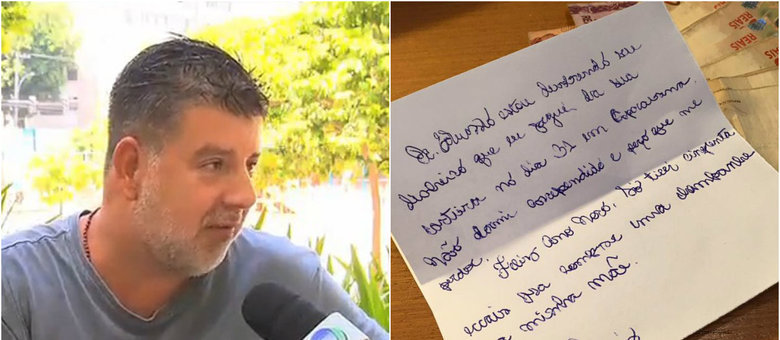 Sr. Eduardo estou devolvendo seu
dinheiro que eu peguei da sua
carteira no dia 31 em Copacabana.
Não dormi arrependido e peço que me
perdoe. Feliz Ano Novo. Só tirei cinquenta
reais pra comprar uma champanhe
a minha mãe.
REAIS
REAIS